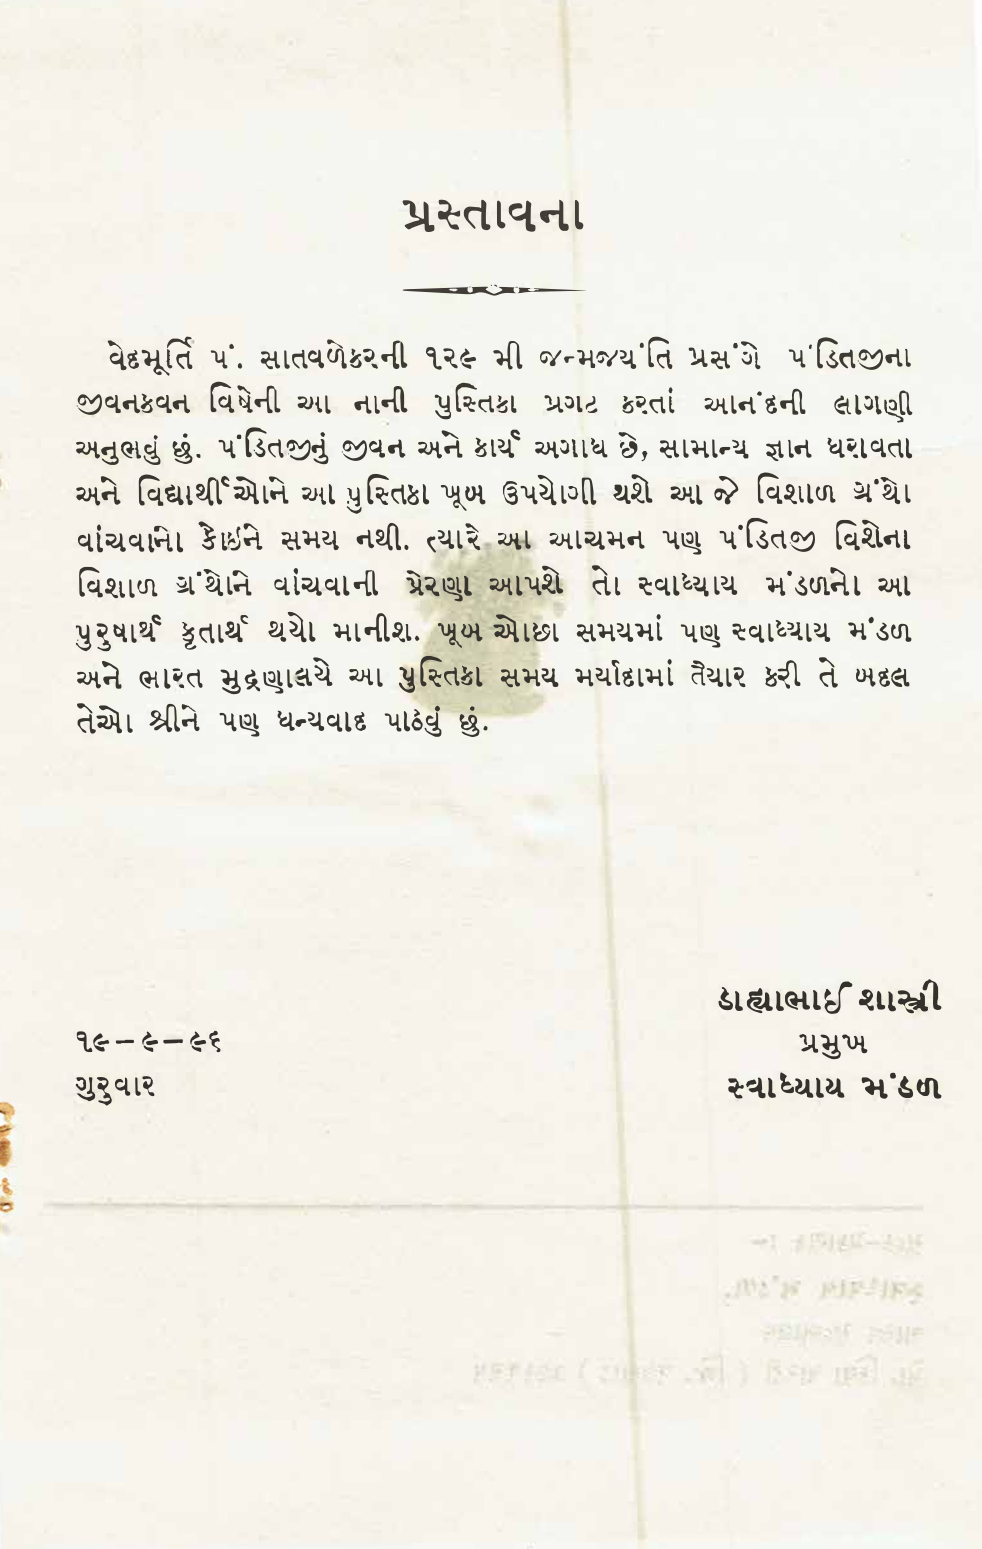 પ્રસ્તાવના
વેદમૂર્તિ પં. સાતવળેકરની ૧૨૯ મી જન્મજયંતિ પ્રસંગે પંડિતજીના
જીવનકવન વિષેની આ નાની પુસ્તિકા પ્રગટ કરતાં આનંદની લાગણી
અનુભવું છું. પંડિતજીનું જીવન અને કાર્ય અગાધ છે, સામાન્ય જ્ઞાન ધરાવતા
અને વિદ્યાર્થીઓને આ પુસ્તિકા ખૂબ ઉપયોગી થશે આ જે વિશાળ ગ્રંથો
વાંચવાનો કોઇને સમય નથી. ત્યારે આ આચમન પણ પંડિતજી વિશેના
વિશાળ ગ્રંથોને વાંચવાની પ્રેરણા આપશે તો સ્વાધ્યાય મંડળનો આ
પુરુષાર્થ કૃતાર્થ થયો માનીશ. ખૂબ ઓછા સમયમાં પણ સ્વાધ્યાય મંડળ
અને ભારત મુદ્રણાલયે આ પુસ્તિકા સમય મર્યાદામાં તૈયાર કરી તે બદલ
તેઓ શ્રીને પણ ધન્યવાદ પાઠવું છું.
ડાહ્યાભાઈ શાસ્ત્રી
૧૯–૯–૯૬ પ્રમુખ
ગુરુવાર સ્વાધ્યાય મંડળ